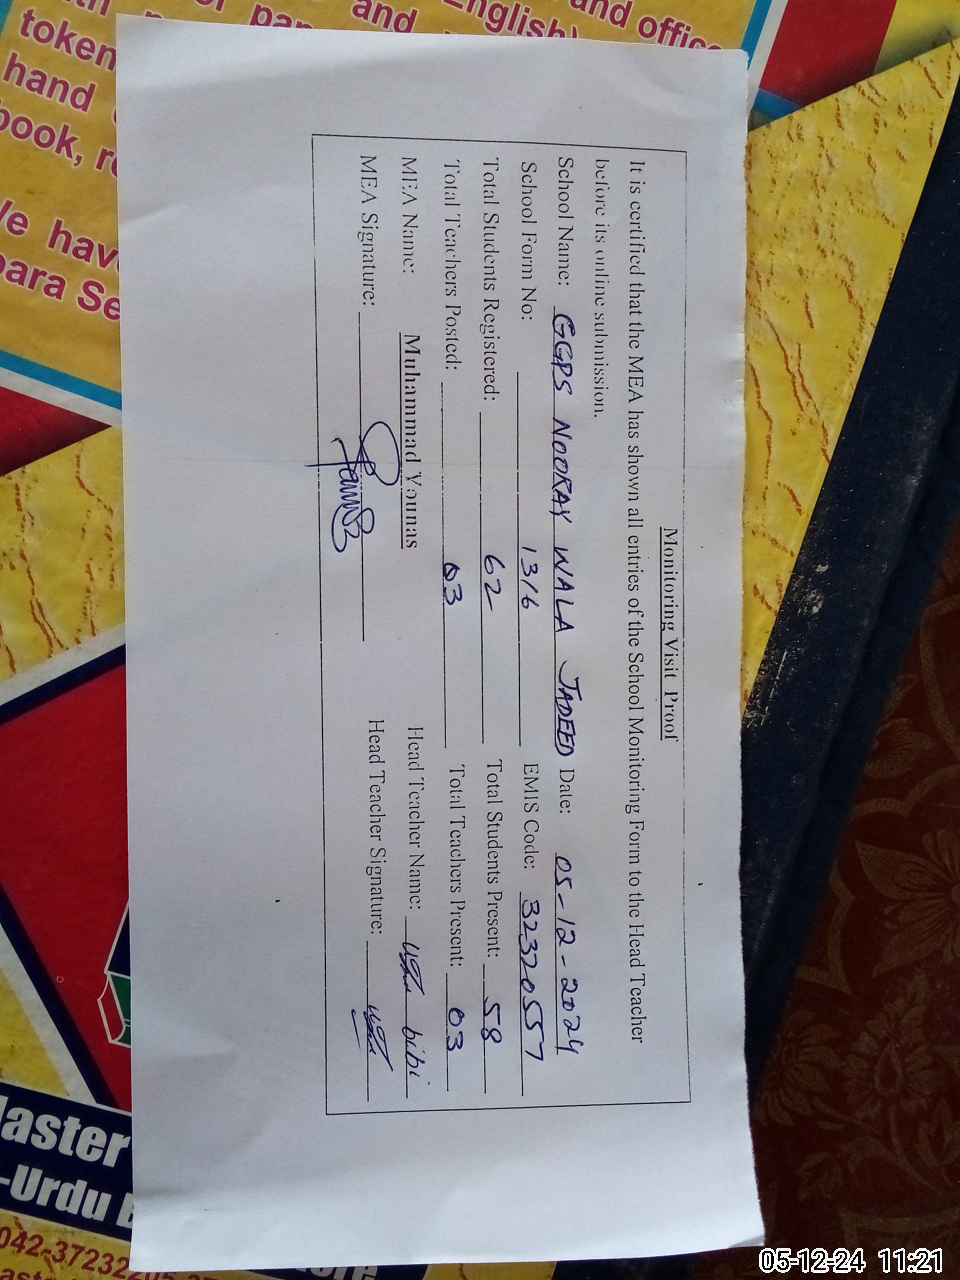 Monitoring Visit Proof
It is certified that the MEA has shown all entries of the School Monitoring Form to the Head Teacher
before its online submission.
School Name: GGPS NOORAY WALA JADEED Date: 05-12-2024
School Form No: 1316 EMIS Code: 32320557
Total Students Registered: 62 Total Students Present: 58
Total Teachers Posted: 03 Total Teachers Present: 03
MEA Name: Muhammad Younas Head Teacher Name: bibi
MEA Signature: Head Teacher Signature:
and
English)
and office
token
hand
book, re
We have
para Se
Master
-Urdu
042-37232
05-12-24 11:21